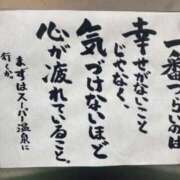 一番つらいのは
幸せがないこと
じゃなく、
気づけないほど
心が疲れていること。
まずはスーパー温泉に
行くか。